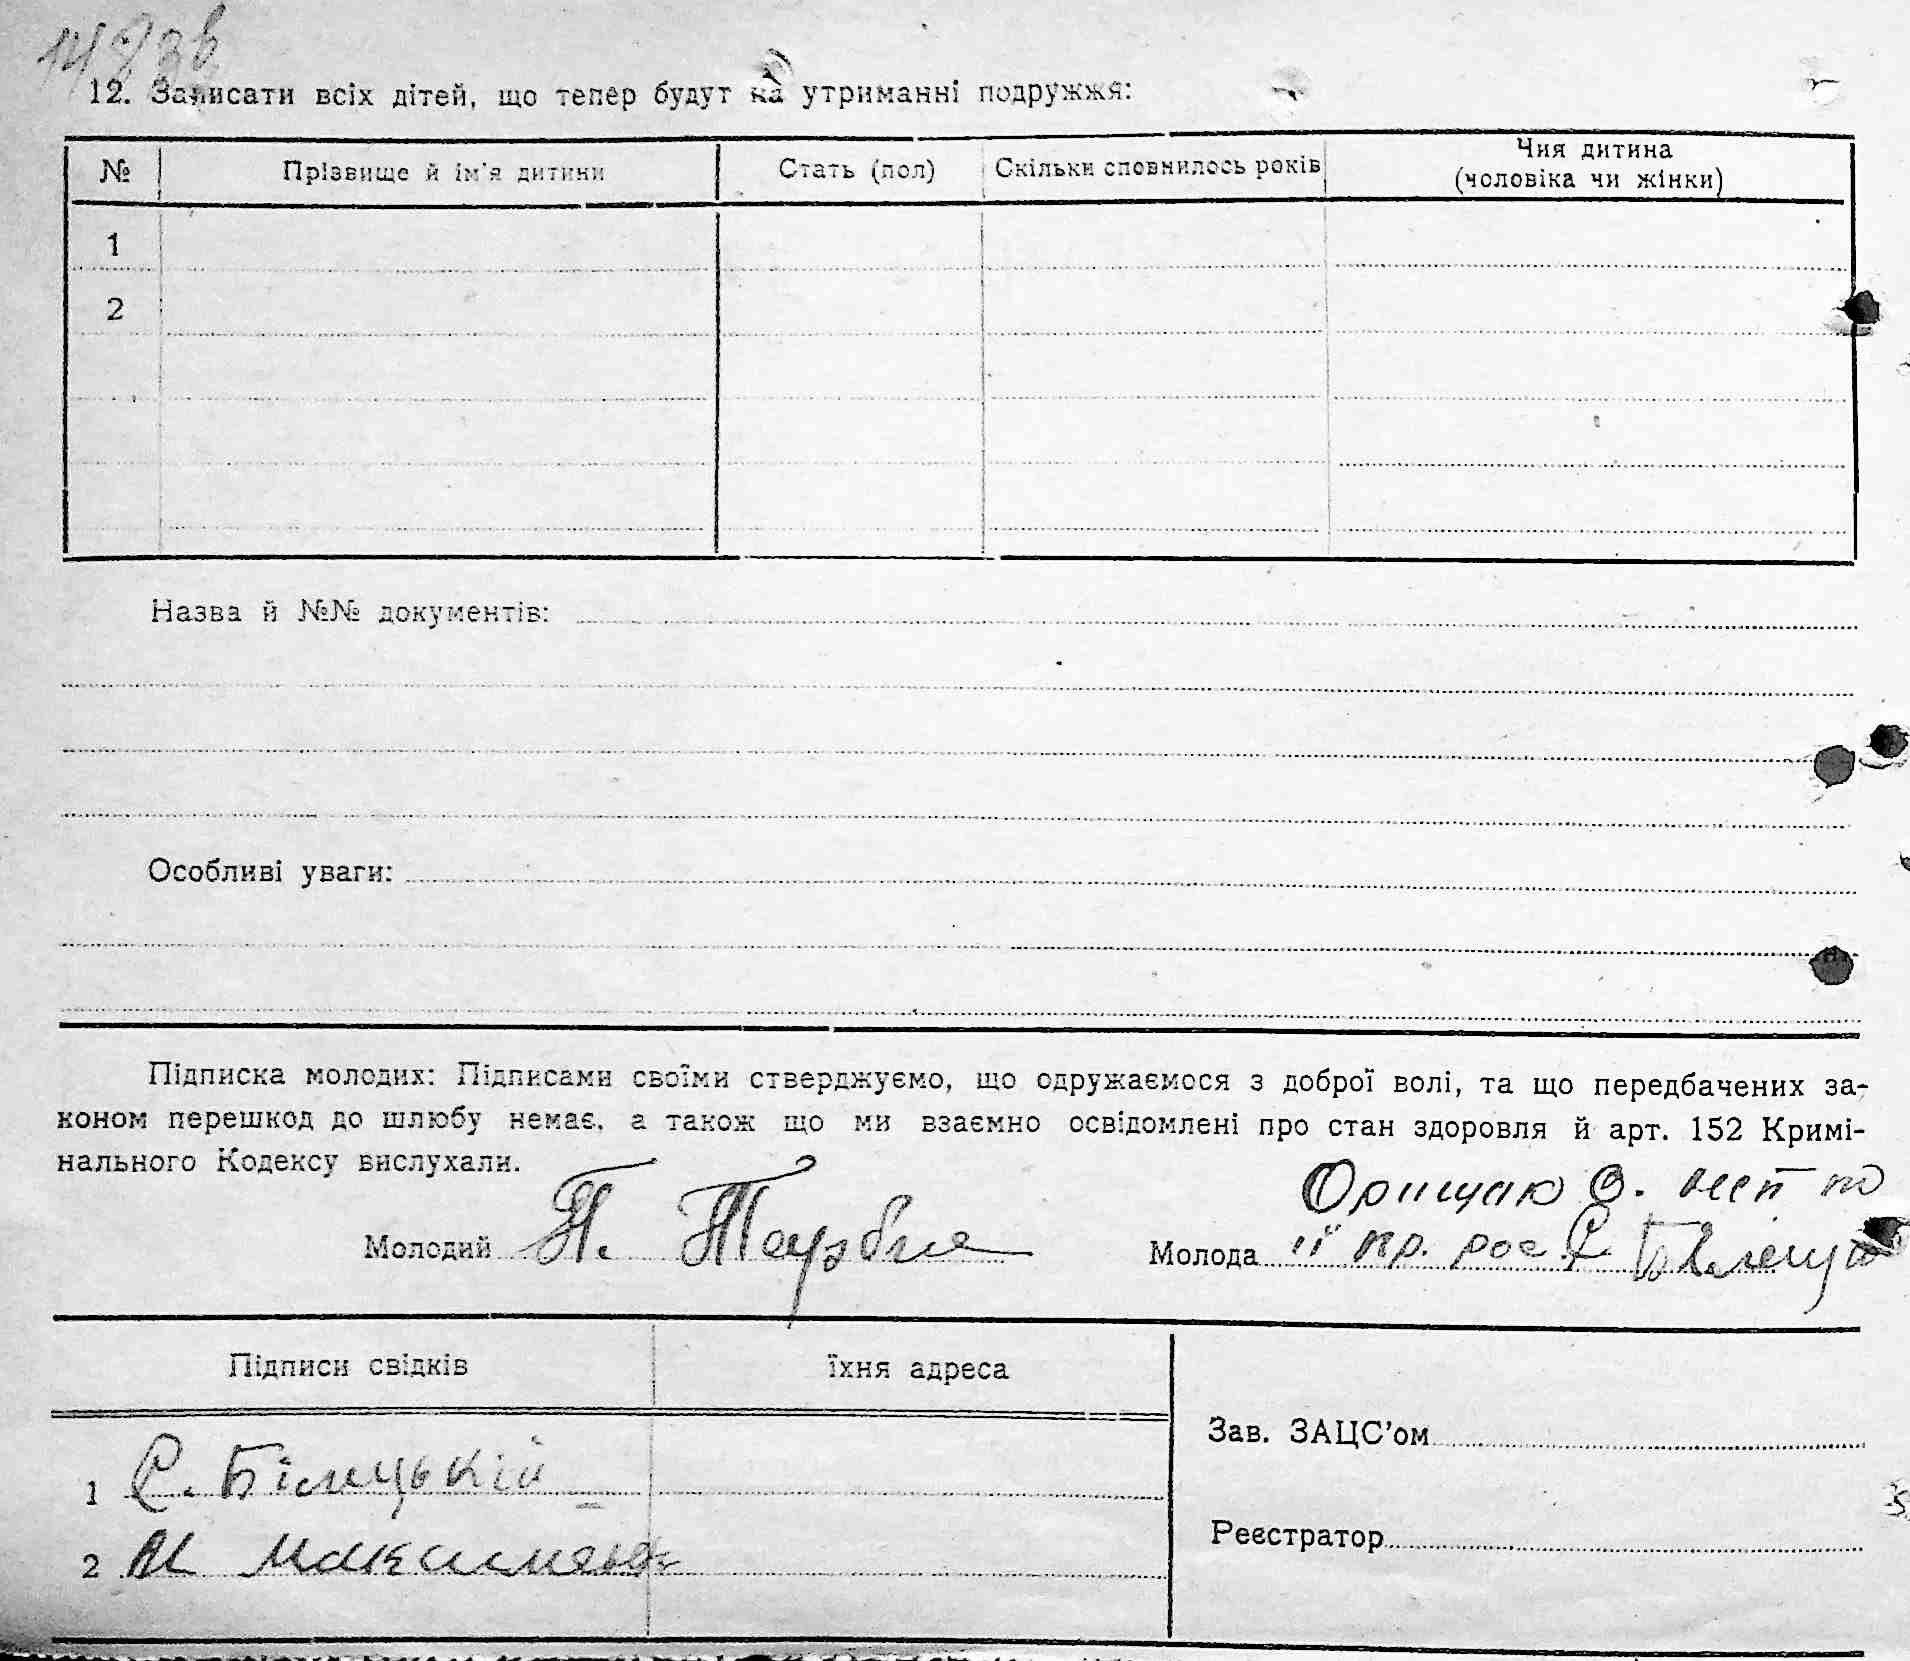 12. Записати всіх дітей, що тепер будут на утриманні подружжя:
№ Прізвище й ім'я дитини Стать (пол) Скільки сповнилось років Чия дитина
(чоловіка чи жінки)
1
2
Назва й №№ документів:
Особливі уваги:
Підписка молодих: Підписами своїми стверджуємо, що одружаємося з доброї волі, та що передбачених за-
коном перешкод до шлюбу немає, а також що ми взаємно освідомлені про стан здоровля й арт. 152 Кримі-
нального Кодексу вислухали.
Орищак О. неп по
Молодий П. Молода її пр. рос.
Підписи свідків їхня адреса
Зав. ЗАЦС'ом
1 С. Білецькій
Реєстратор
2 М